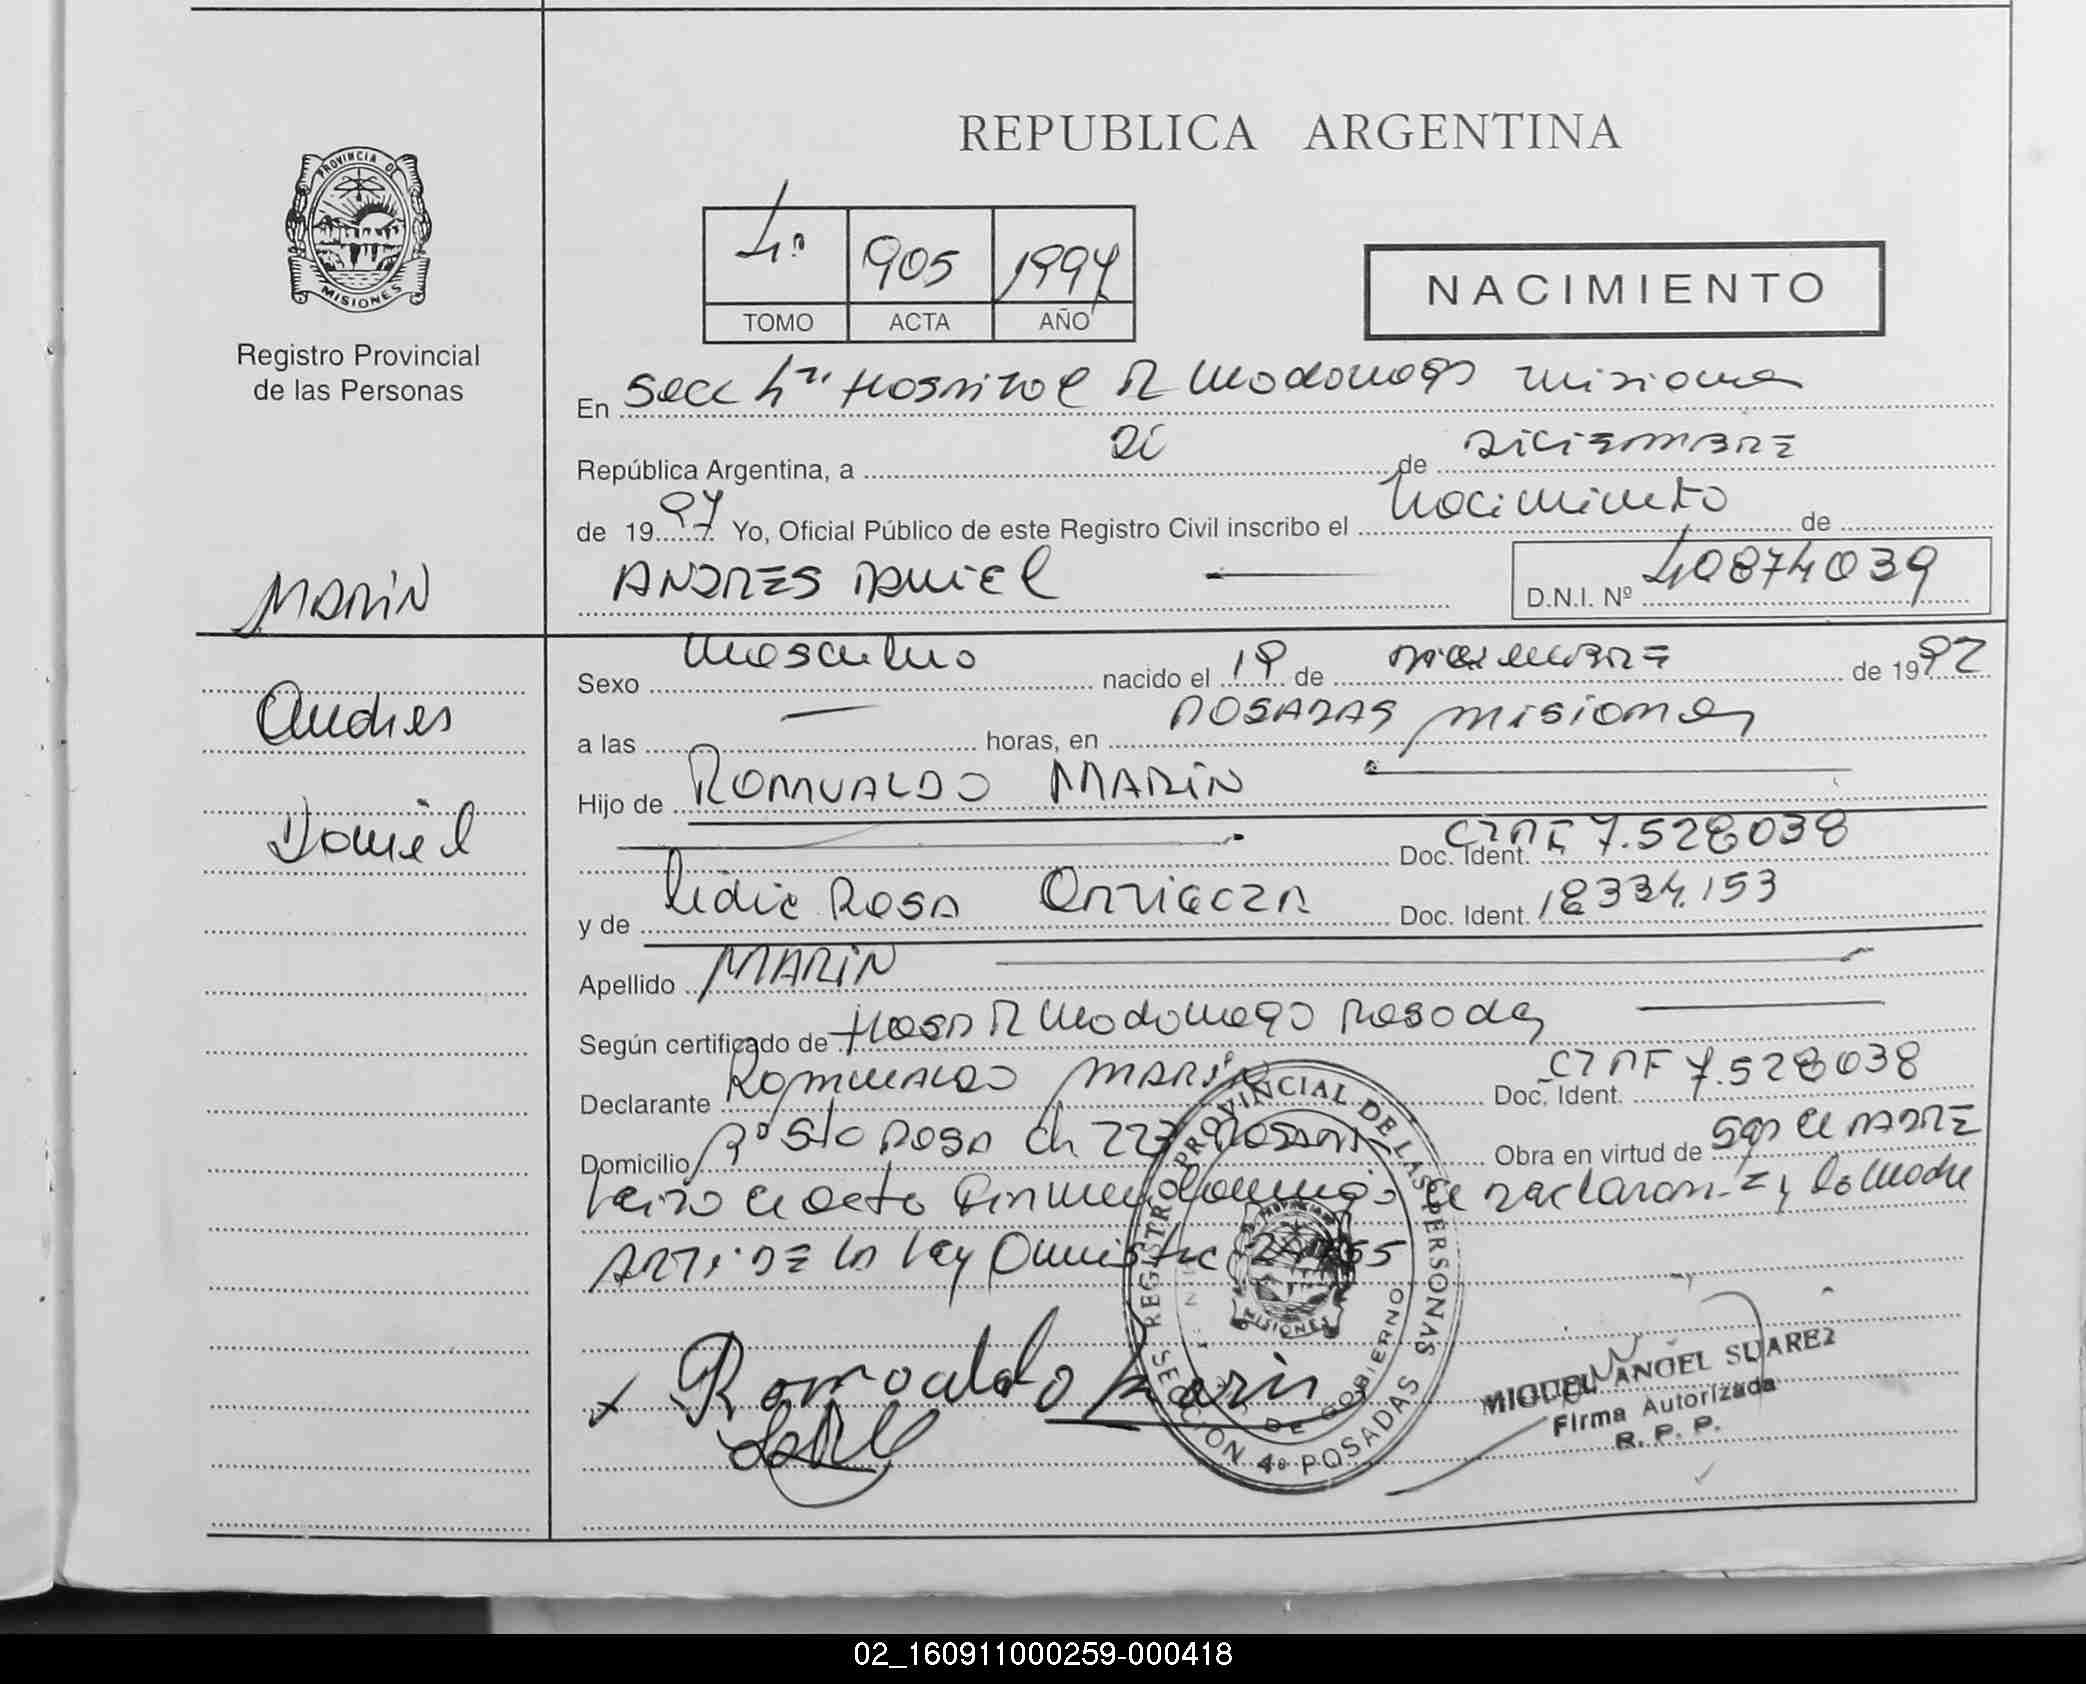 REPUBLICA ARGENTINA
PROVINCIA DE
MISIONES
Registro Provincial
de las Personas
4º 905 1997
TOMO ACTA AÑO
NACIMIENTO
En Secc 4ta Hospital R Madariaga Misiones
República Argentina, a de DICIEMBRE
de 1997 Yo, Oficial Público de este Registro Civil inscribo el Nacimiento de
MARIN
ANDRES DANIEL
D.N.I. Nº 40874039
Sexo Masculino nacido el 19 de DICIEMBRE de 1997
Andres
a las — horas, en POSADAS Misiones
Hijo de ROMUALDO MARIN
Daniel
Doc. Ident. 7.528038
y de Lidia ROSA Doc. Ident. 18334.153
Apellido MARIN
Según certificado de Hosp R Madariaga Posadas
Declarante ROMUALDO MARIN Doc. Ident. 7.528038
Domicilio Bº Sta ROSA Ch 227 POSADAS Obra en virtud de ser el PADRE
Leido el acta la Madre
ART. DE la Ley
x Romoaldo Marin
REGISTRO PROVINCIAL DE LAS PERSONAS
MISIONES
DE GOBIERNO
SECCION 4ª POSADAS
MIGUEL ANGEL SUAREZ
Firma Autorizada
R. P. P.
02_160911000259-000418